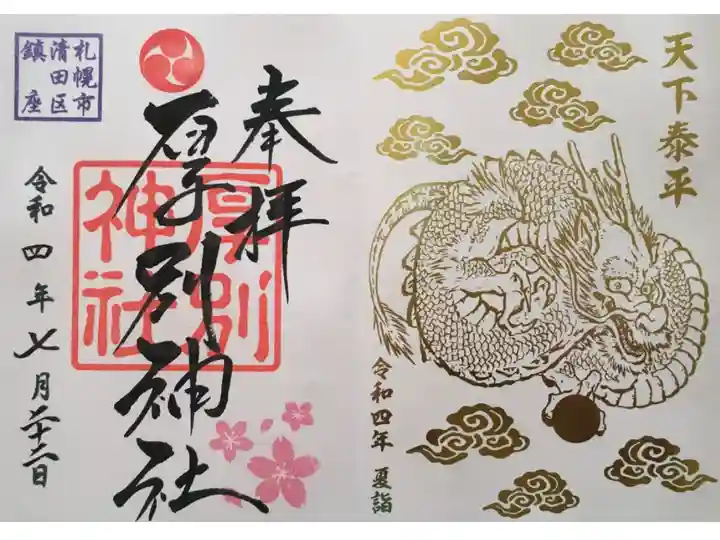 天下泰平
令和四年 夏詣
奉拝
厚別神社
厚別
神社
札幌市
清田区
鎮座
令和四年七月二十二日